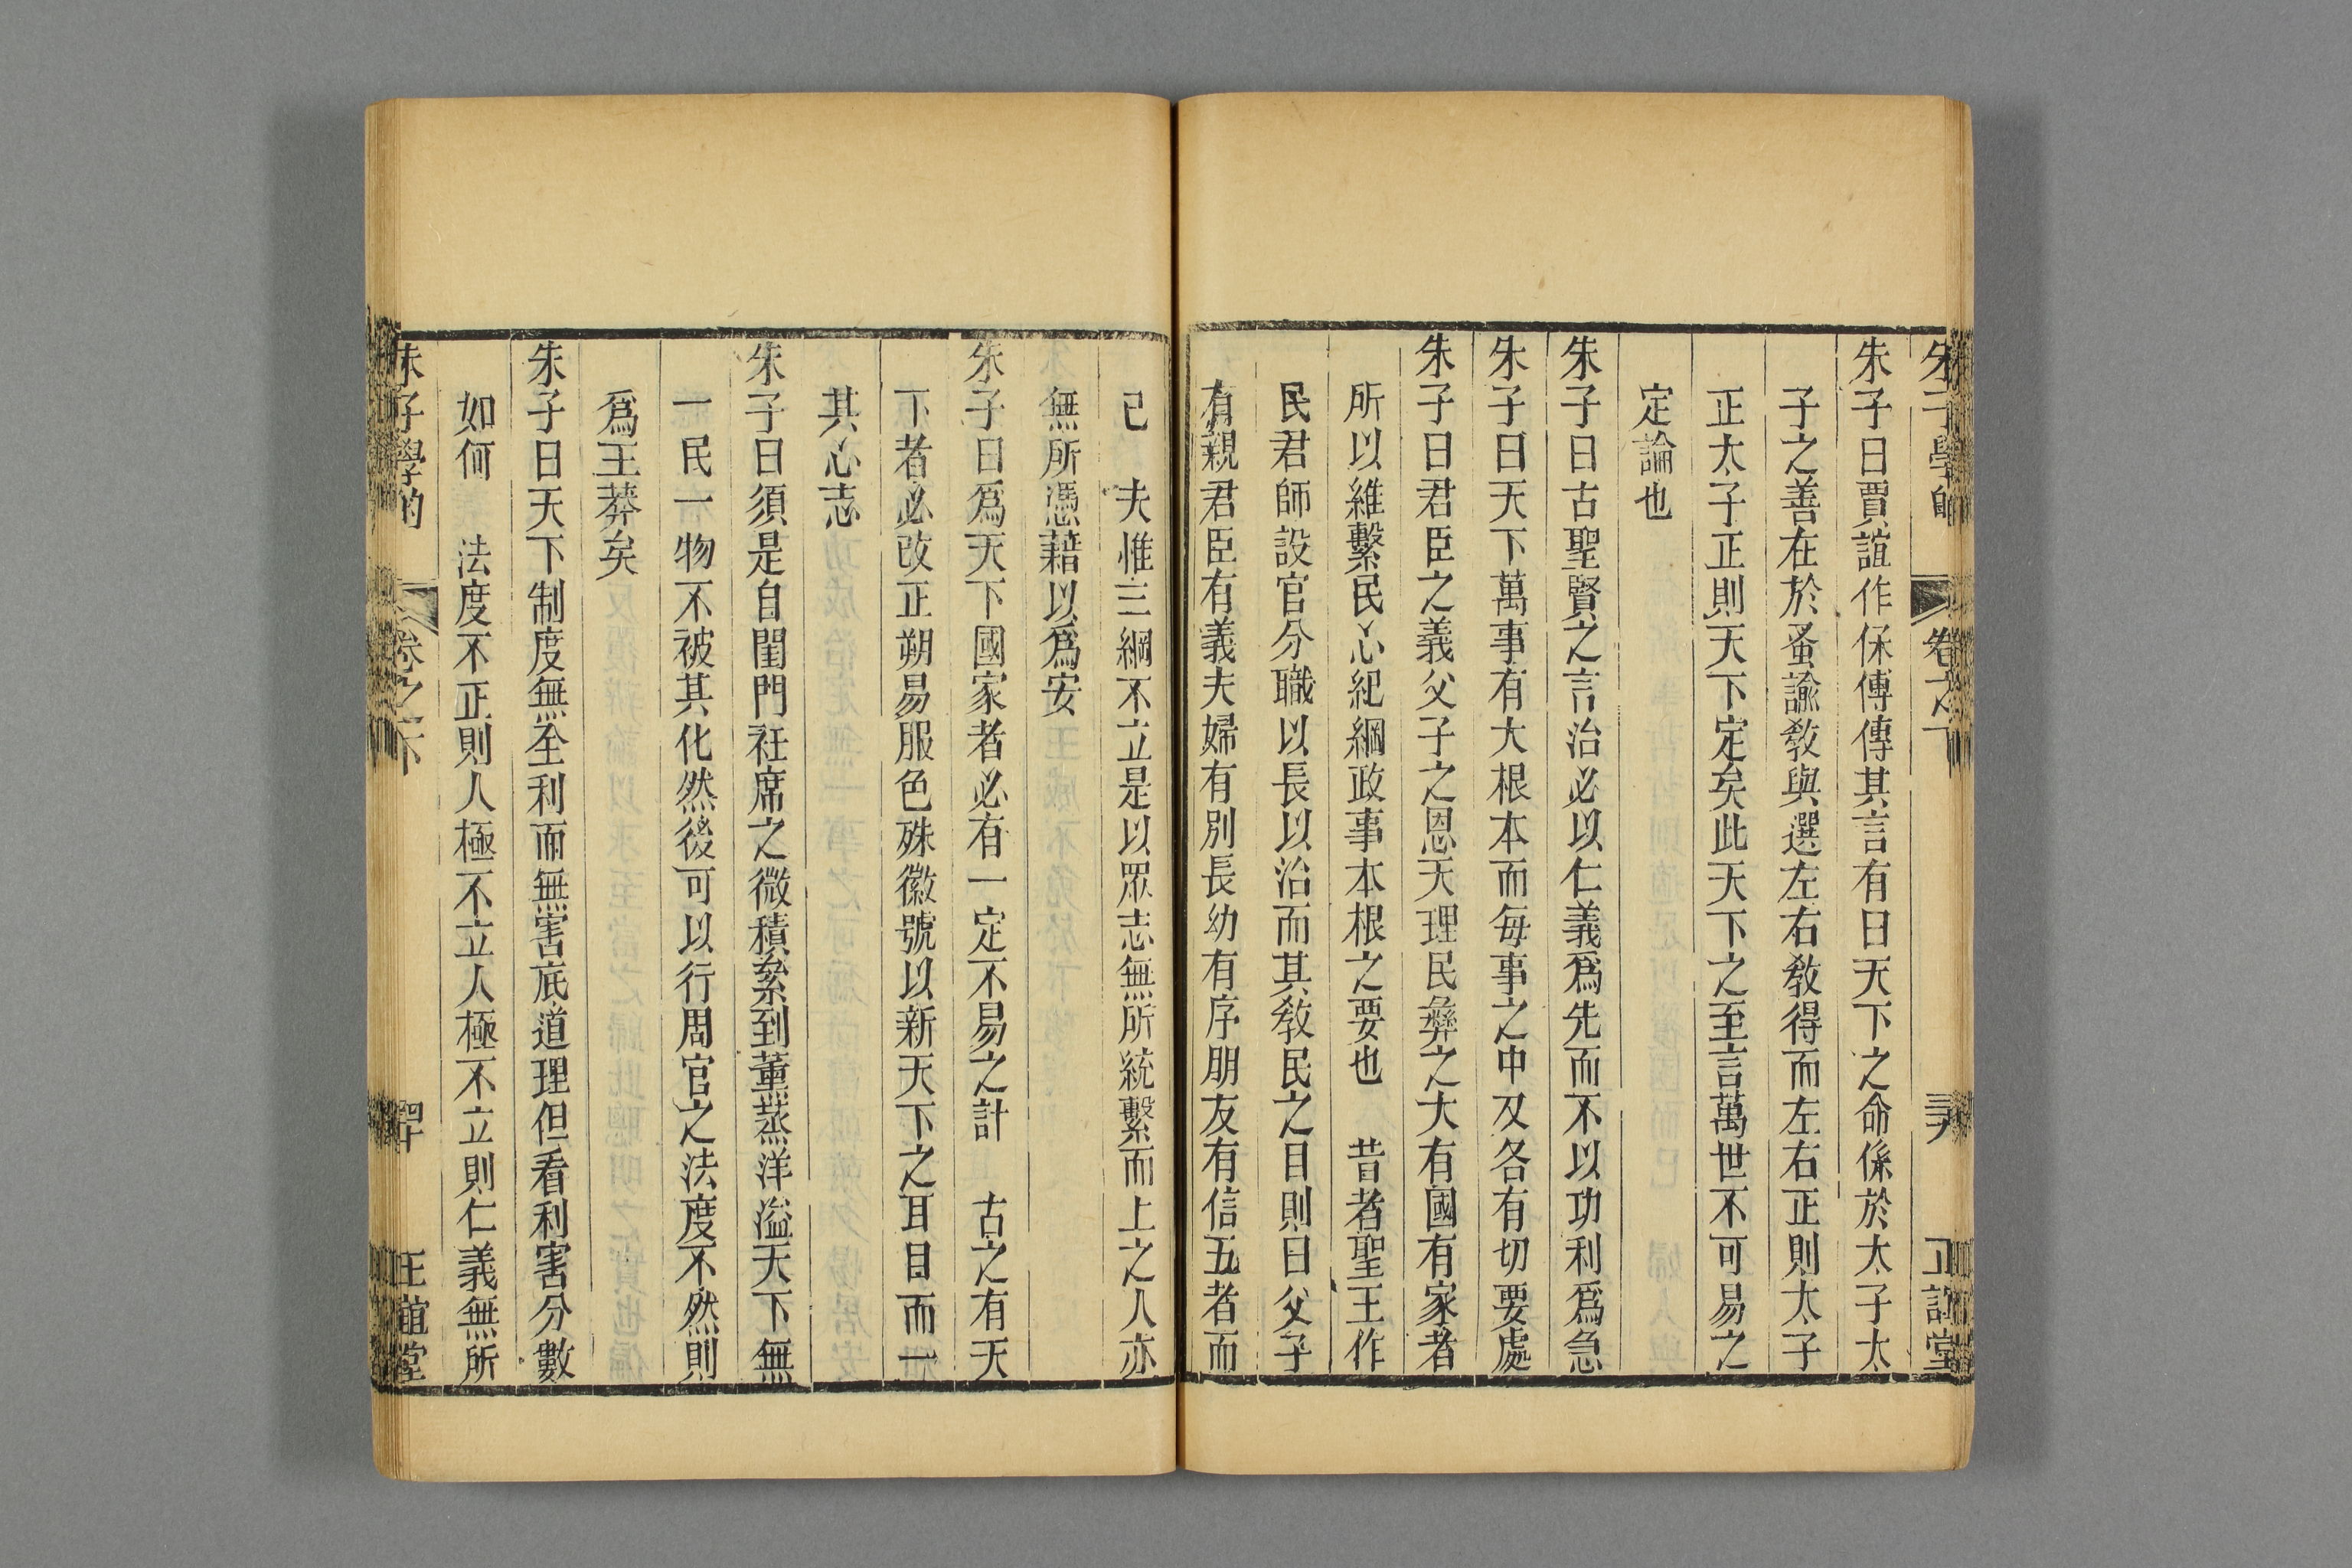 朱子學的 卷之下 正誼堂
朱子曰賈誼作保傅傳其言有曰天下之命係於太子太
子之善在於蚤諭教與選左右教得而左右正則太子
正太子正則天下定矣此天下之至言萬世不可易之
定論也
朱子曰古聖賢之言治必以仁義爲先而不以功利爲急
朱子曰天下萬事有大根本而每事之中又各有切要處
朱子曰君臣之義父子之恩天理民彝之大有國有家者
所以維繫民心紀綱政事本根之要也 昔者聖王作
民君師設官分職以長以治而其教民之目則曰父子
有親君臣有義夫婦有別長幼有序朋友有信五者而
已 夫惟三綱不立是以眾志無所統繫而上之人亦
無所憑藉以爲安
朱子曰爲天下國家者必有一定不易之計 古之有天
下者必改正朔易服色殊徽號以新天下之耳目而一
其心志
朱子曰須是自閨門衽席之微積絫到薰蒸洋溢天下無
一民一物不被其化然後可以行周官之法度不然則
爲王莽矣
朱子曰天下制度無全利而無害底道理但看利害分數
如何 法度不正則人極不立人極不立則仁義無所
朱子學的 卷之下 四十 正誼堂